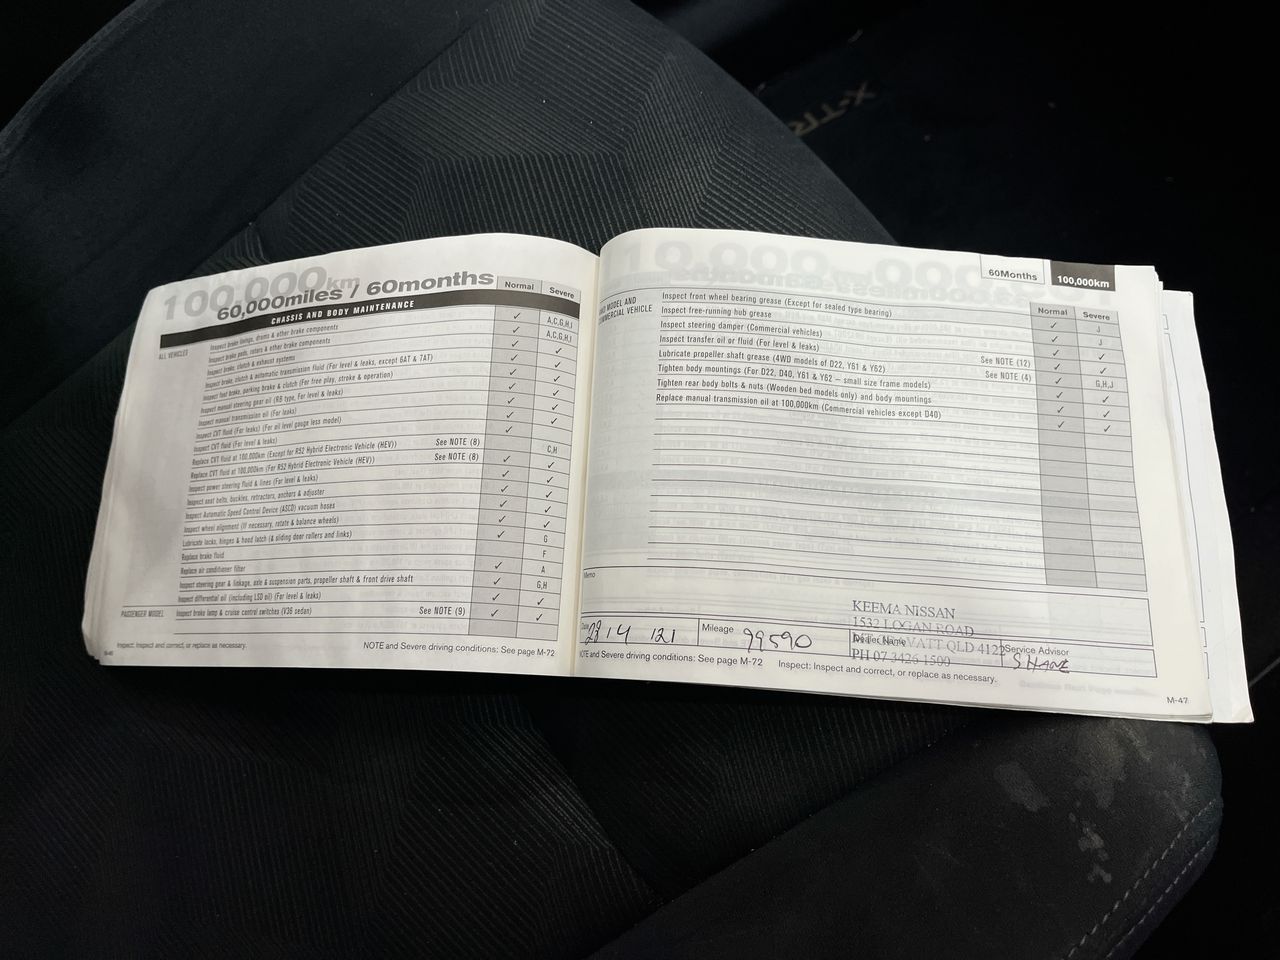 X-TR
100,000km
60,000miles / 60months
Normal
Severe
CHASSIS AND BODY MAINTENANCE
ALL VEHICLES
Inspect brake linings, drums & other brake components
✓
A,C,G,H,I
Inspect brake pads, rotors & other brake components
✓
A,C,G,H,I
Inspect brake, clutch & exhaust systems
✓
✓
Inspect brake, clutch & automatic transmission fluid (For level & leaks, except 6AT & 7AT)
✓
✓
Inspect foot brake, parking brake & clutch (For free play, stroke & operation)
✓
✓
Inspect manual steering gear oil (RB type, For level & leaks)
✓
✓
Inspect manual transmission oil (For leaks)
✓
✓
Inspect CVT fluid (For leaks) (For oil level gauge less model)
✓
✓
Inspect CVT fluid (For level & leaks)
✓
Replace CVT fluid at 100,000km (Except for R52 Hybrid Electronic Vehicle (HEV)) See NOTE (8)
C,H
Replace CVT fluid at 100,000km (For R52 Hybrid Electronic Vehicle (HEV)) See NOTE (8)
✓
✓
Inspect power steering fluid & lines (For level & leaks)
✓
✓
Inspect seat belts, buckles, retractors, anchors & adjuster
✓
✓
Inspect Automatic Speed Control Device (ASCD) vacuum hoses
✓
✓
Inspect wheel alignment (If necessary, rotate & balance wheels)
✓
✓
Lubricate locks, hinges & hood latch (& sliding door rollers and links)
✓
G
Replace brake fluid
F
Replace air conditioner filter
✓
A
Inspect steering gear & linkage, axle & suspension parts, propeller shaft & front drive shaft
✓
G,H
Inspect differential oil (including LSD oil) (For level & leaks)
✓
✓
PASSENGER MODEL
Inspect brake lamp & cruise control switches (V36 sedan) See NOTE (9)
✓
✓
Inspect: Inspect and correct, or replace as necessary.
NOTE and Severe driving conditions: See page M-72
60Months
100,000km
Normal
Severe
MODEL AND
COMMERCIAL VEHICLE
Inspect front wheel bearing grease (Except for sealed type bearing)
✓
J
Inspect free-running hub grease
✓
J
Inspect steering damper (Commercial vehicles)
✓
✓
Inspect transfer oil or fluid (For level & leaks)
✓
✓
Lubricate propeller shaft grease (4WD models of D22, Y61 & Y62) See NOTE (12)
✓
G,H,J
Tighten body mountings (For D22, D40, Y61 & Y62 – small size frame models) See NOTE (4)
✓
✓
Tighten rear body bolts & nuts (Wooden bed models only) and body mountings
✓
✓
Replace manual transmission oil at 100,000km (Commercial vehicles except D40)
✓
✓
Memo
KEEMA NISSAN
1532 LOGAN ROAD
MT GRAVATT QLD 4122
PH 07 3426 1500
Date
23/4/21
Mileage
99590
Dealer Name
Service Advisor
SHANE
NOTE and Severe driving conditions: See page M-72
Inspect: Inspect and correct, or replace as necessary.
M-47